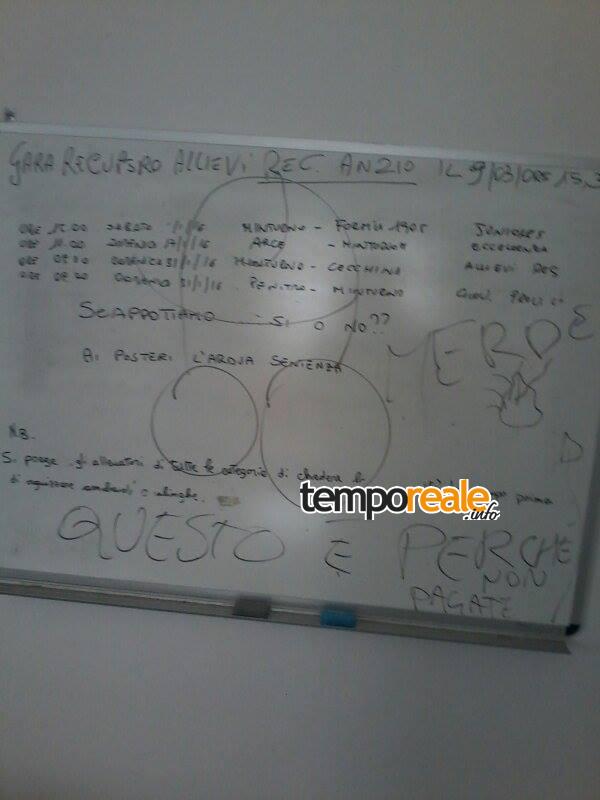 GARA RECUPERO ALLIEVI REC. ANZIO IL 9/03/ORE 15,3
ORE 15.00 SABATO 1/1/16 MINTURNO - FORMIA 1905 JUNIORES
ORE 11.00 DOMENICA 17/1/16 ARCE - MINTURNO ECCELLENZA
ORE 09.30 DOMENICA 31/1/16 MINTURNO - CECCHINA ALLIEVI REG
ORE 09.30 DOMENICA 31/1/16 PENITRO - MINTURNO GIOV. PROV. LI
SCAPPOTIAMO SI O NO??
AI POSTERI L'ARDUA SENTENZA
MERDE
D
N.B.
Si prega gli allenatori di tutte le categorie di chiedere
prima
di
QUESTO È PERCHE
NON
PAGATE
temporeale.info